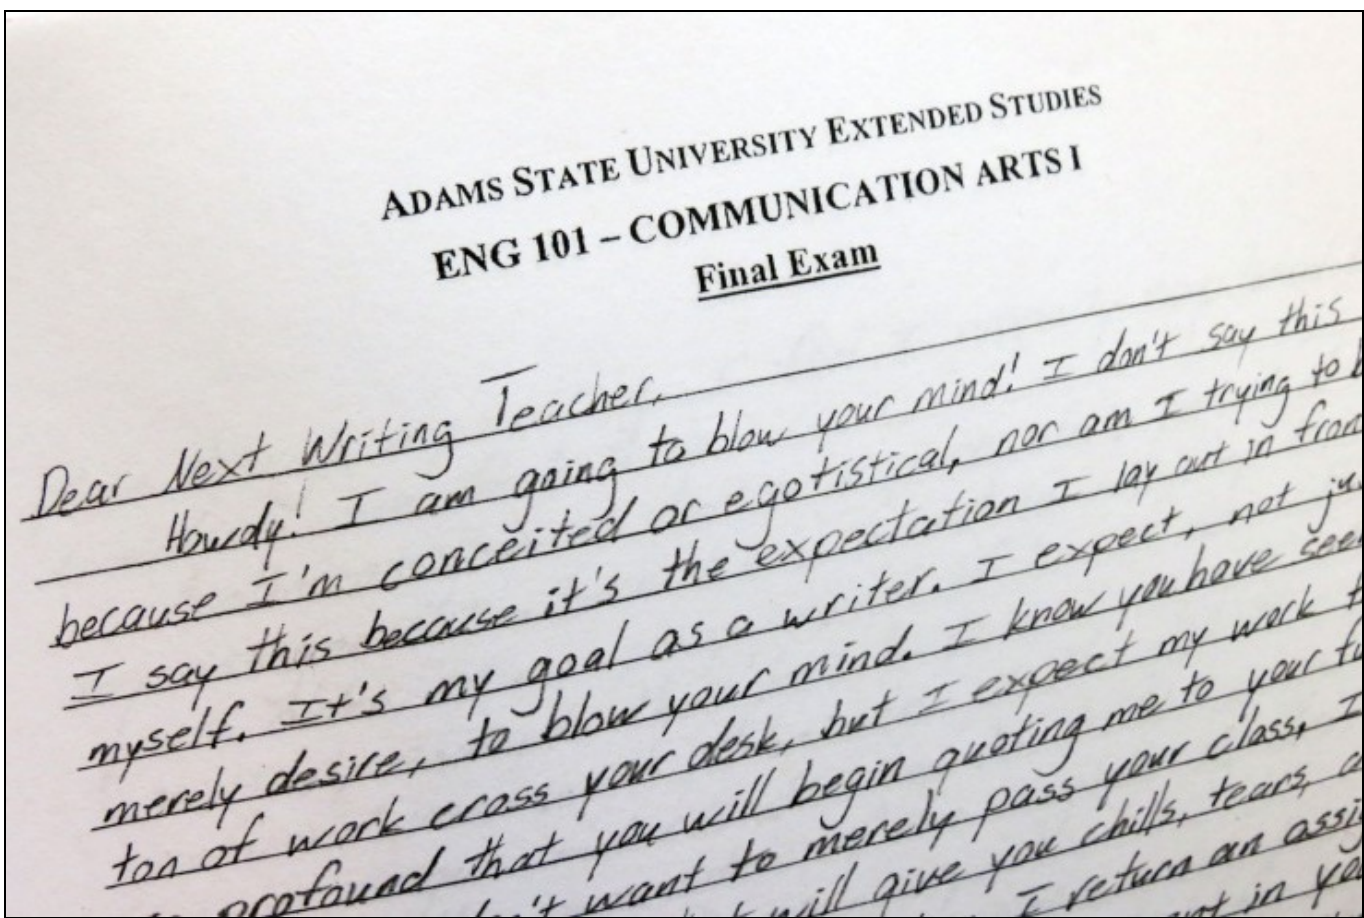 ADAMS STATE UNIVERSITY EXTENDED STUDIES
ENG 101 – COMMUNICATION ARTS I
Final Exam
Dear Next Writing Teacher,
Howdy! I am going to blow your mind! I don't say this
because I'm conceited or egotistical, nor am I trying to
I say this because it's the expectation I lay out in
myself. It's my goal as a writer. I expect, not
merely desire, to blow your mind. I know you have
ton of work cross your desk, but I expect my work
profound that you will begin quoting me to your
want to merely pass your class, I
will give you chills, tears,
I return an
in